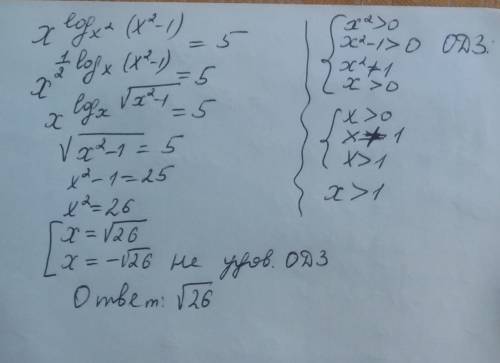 x^{log_{x^2} (x^2-1)} = 5
x^{\frac{1}{2} log_x (x^2-1)} = 5
x^{log_x \sqrt{x^2-1}} = 5
\sqrt{x^2-1} = 5
x^2-1 = 25
x^2 = 26
[ x = \sqrt{26}
x = -\sqrt{26} не удов. ОДЗ
Ответ: \sqrt{26}
{ x^2>0
x^2-1>0 ОДЗ:
x^2≠1
x>0
{ x>0
x≠1
x>1
x>1